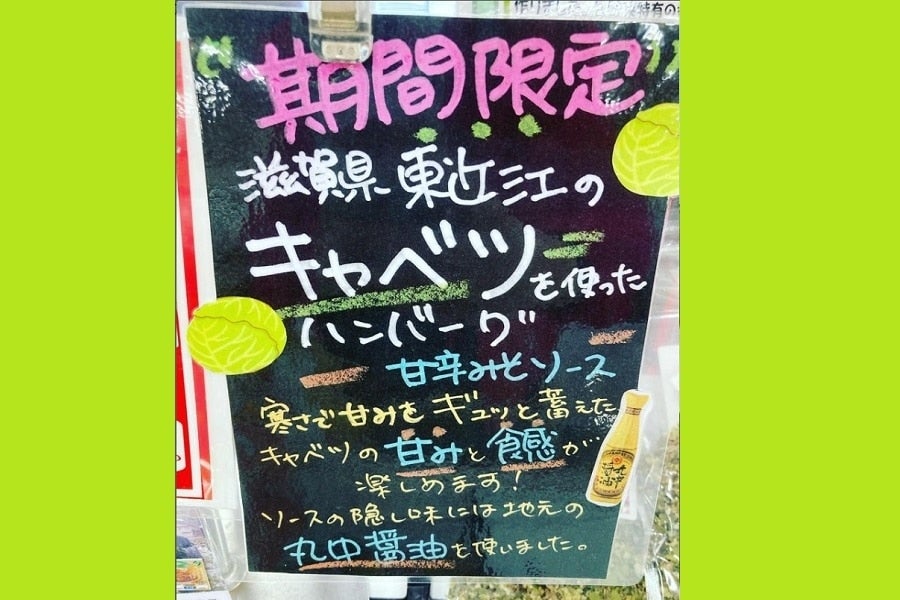 期間限定
滋賀県東近江の
キャベツを使った
ハンバーグ
甘辛みそソース
寒さで甘みをギュッと蓄えた
キャベツの甘みと食感が…
楽しめます!
ソースの隠し味には地元の
丸中醤油を使いました。